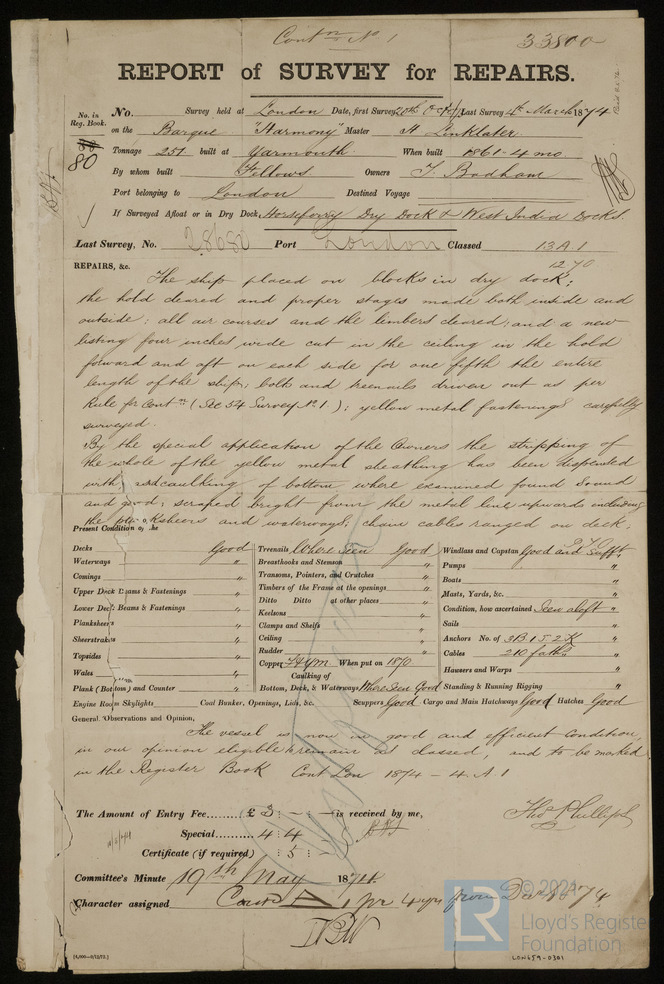 Contn No 1
33800
REPORT of SURVEY for REPAIRS.
No. in Reg. Book. No. Survey held at London Date, first Survey 20th Octr Last Survey 4th March 1874
80 on the Barque "Harmony" Master H Linklater
Tonnage 251 built at Yarmouth When built 1861-4 mo
By whom built Fellows Owners T. Bodham
Port belonging to London Destined Voyage
If Surveyed Afloat or in Dry Dock Horseferry Dry Dock & West India Docks.
Last Survey, No. 28682 Port London Classed 13 A 1
REPAIRS, &c. 12 70
The ship placed on blocks in dry dock;
the hold cleared and proper stages made both inside and
outside: all air courses and the limbers cleared; and a new
listing four inches wide cut in the ceiling in the hold
forward and aft on each side for one fifth the entire
length of the ship; bolts and treenails driven out as per
Rule for Contn (Sec 54 Survey No 1); yellow metal fastenings carefully
surveyed.
By the special application of the Owners the stripping of
the whole of the yellow metal sheathing has been dispensed
with and caulking of bottom where examined found sound
and good; scraped bright from the metal line upwards including
the plansheers and waterways; chain cables ranged on deck.
Present Condition of the
Decks Good Treenails Where Seen Good Windlass and Capstan Good and Sufft
Waterways " Breasthooks and Stemson " Pumps "
Comings " Transoms, Pointers, and Crutches " Boats "
Upper Deck Beams & Fastenings " Timbers of the Frame at the openings " Masts, Yards, &c. "
Lower Deck Beams & Fastenings " Ditto Ditto at other places " Condition, how ascertained Seen aloft "
Plansheers " Keelsons " Sails "
Sheerstrakes " Clamps and Shelfs " Anchors No. of 3B 1S 2K "
Topsides " Ceiling " Cables 210 faths "
Wales " Rudder " Hawsers and Warps "
Copper &YM When put on 1870
Plank (Bottom) and Counter " Caulking of Bottom, Deck, & Waterways Where Seen Good Standing & Running Rigging "
Engine Room Skylights Coal Bunker, Openings, Lids, &c. Scuppers Good Cargo and Main Hatchways Good Hatches Good
General Observations and Opinion,
The vessel is now in good and efficient condition,
in our opinion eligible to remain as classed, and to be marked
in the Register Book Cont Lon 1874 - 4 A.1
The Amount of Entry Fee...... £ 3 : - : - is received by me,
Special...... 4 : 4
Certificate (if required) : 5 : -
Thos Phillips
Committee's Minute 19th May 1874.
Character assigned Contd A 1 for 4 yrs from Decr 1874
© 2021
LR
Lloyd's Register
Foundation
LON659-0301